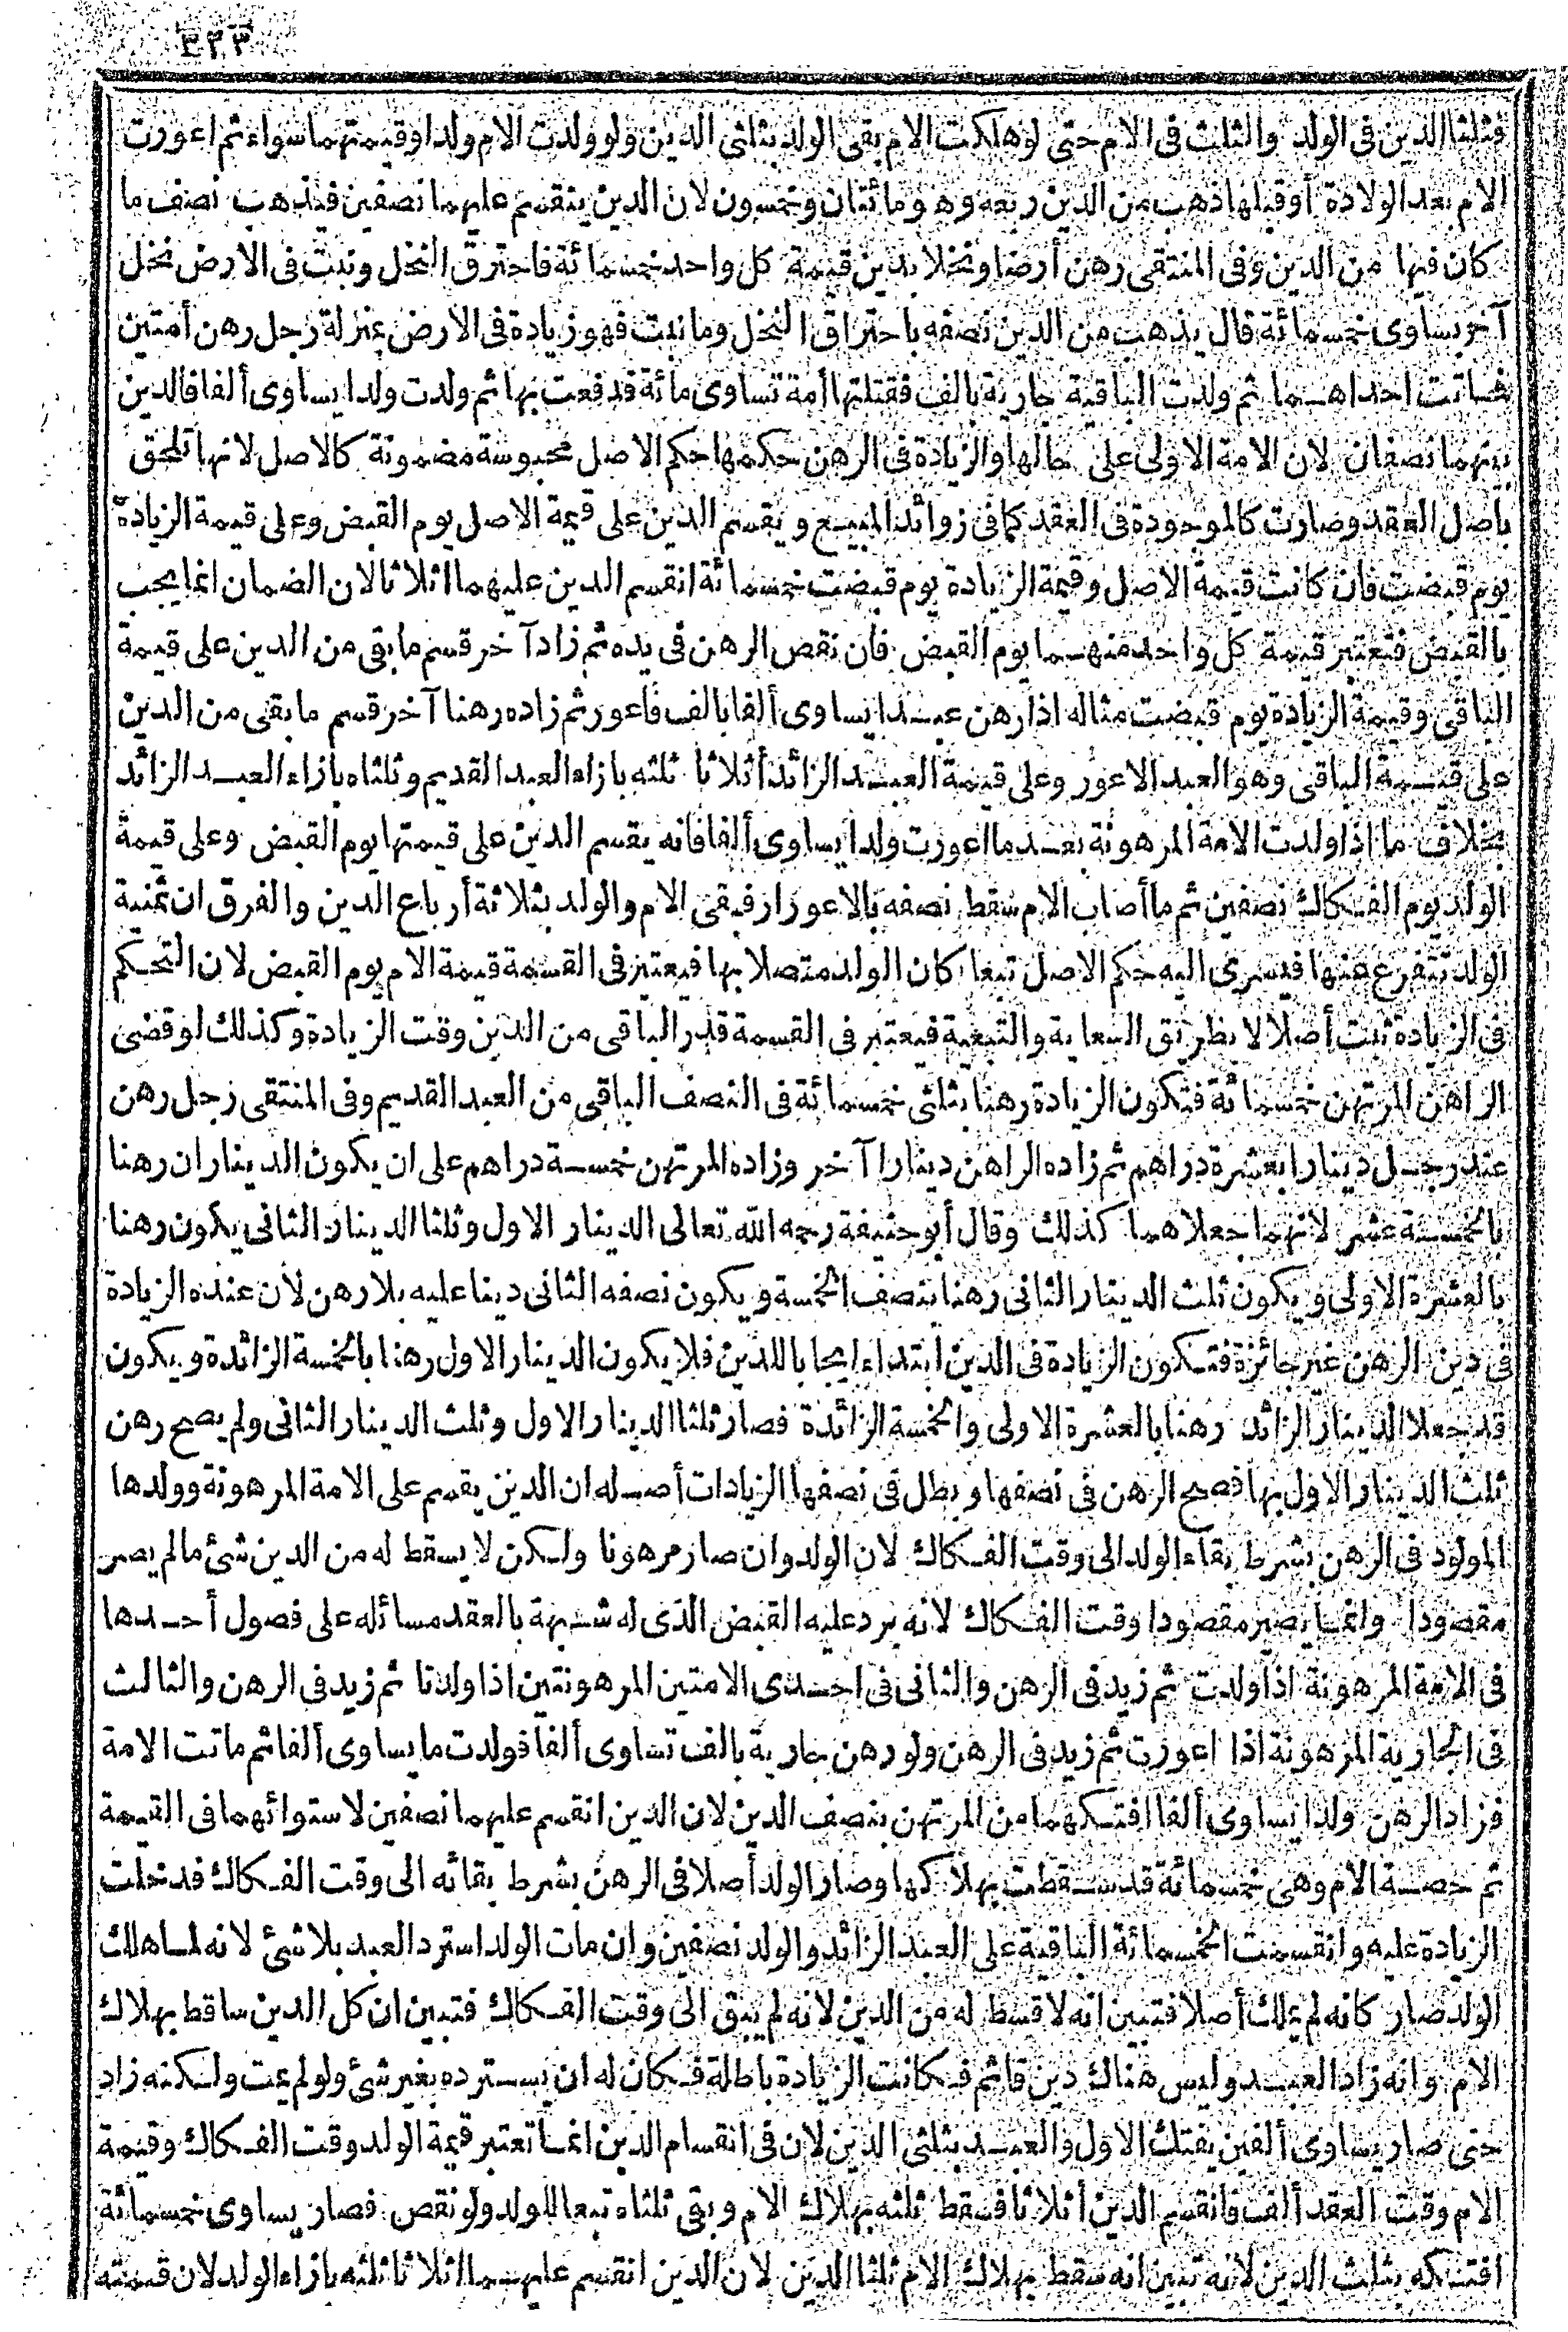 ٣٣٣
فثلثا الدين فى الولد والثلث فى الام حتى لو هلكت الام بقى الولد بثلثى الدين ولو ولدت الام ولدا وقيمتهما سواء ثم اعورت
الام بعد الولادة أو قبلها ذهب من الدين ربعه وهو مائتان وخمسون لان الدين ينقسم عليهما نصفين فيذهب نصف ما
كان فيها من الدين وفى المنتقى رهن أرضا ونخلا بدين قيمة كل واحد خمسمائة فاحترق النخل ونبت فى الارض نخل
آخر يساوى خمسمائة قال يذهب من الدين نصفه باحتراق النخل وما نبت فهو زيادة فى الارض بمنزلة رجل رهن أمتين
فماتت احداهما ثم ولدت الباقية جارية بالف فقتلتها أمة تساوى مائة فدفعت بها ثم ولدت ولدا يساوى ألفا فالدين
بينهما نصفان لان الامة الاولى على حالها والزيادة فى الرهن حكمها حكم الاصل محبوسة مضمونة كالاصل لانها تلحق
بأصل العقد وصارت كالموجودة فى العقد كما فى زوائد المبيع ويقسم الدين على قيمة الاصل يوم القبض وعلى قيمة الزيادة
يوم قبضت فان كانت قيمة الاصل وقيمة الزيادة يوم قبضت خمسمائة انقسم الدين عليهما اثلاثا لان الضمان انما يجب
بالقبض فتعتبر قيمة كل واحد منهما يوم القبض فان نقص الرهن فى يده ثم زاد آخر قسم ما بقى من الدين على قيمة
الباقى وقيمة الزيادة يوم قبضت مثاله اذا رهن عبدا يساوى ألفا بالف فاعور ثم زاده رهنا آخر قسم ما بقى من الدين
على قيمة الباقى وهو العبد الاعور وعلى قيمة العبد الزائد أثلاثا ثلثه بازاء العبد القديم وثلثاه بازاء العبد الزائد
بخلاف ما اذا ولدت الامة المرهونة بعد ما اعورت ولدا يساوى ألفا فانه يقسم الدين على قيمتها يوم القبض وعلى قيمة
الولد يوم الفكاك نصفين ثم ما أصاب الام سقط نصفه بالاعورار فبقى الام والولد بثلاثة أرباع الدين والفرق ان ثمنية
الولد تتفرع عنها فيسرى اليه حكم الاصل تبعا كان الولد متصلا بها فيعتبر فى القسمة قيمة الام يوم القبض لان الحكم
فى الزيادة ثبت أصلا لا بطريق السعاية والتبعية فيعتبر فى القسمة قدر الباقى من الدين وقت الزيادة وكذلك لو قضى
الراهن المرتهن خمسمائة فتكون الزيادة رهنا بثلثى خمسمائة فى النصف الباقى من العبد القديم وفى المنتقى رجل رهن
عند رجل دينارا بعشرة دراهم ثم زاده الراهن دينارا آخر وزاده المرتهن خمسة دراهم على ان يكون الديناران رهنا
بالخمسة عشر لانهما جعلاهما كذلك وقال أبو حنيفة رحمه الله تعالى الدينار الاول وثلثا الدينار الثانى يكون رهنا
بالعشرة الاولى ويكون ثلث الدينار الثانى رهنا بنصف الخمسة ويكون نصفه الثانى دينا عليه بلا رهن لأن عنده الزيادة
فى دين الرهن غير جائزة فتكون الزيادة فى الدين ابتداء ايجابا للدين فلا يكون الدينار الاول رهنا بالخمسة الزائدة ويكون
قد جعلا الدينار الزائد رهنا بالعشرة الاولى والخمسة الزائدة فصار ثلثا الدينار الاول وثلث الدينار الثانى ولم يصح رهن
ثلث الدينار الاول بها فصح الرهن فى نصفها وبطل فى نصفها الزيادات أصله ان الدين يقسم على الامة المرهونة وولدها
المولود فى الرهن بشرط بقاء الولد الى وقت الفكاك لان الولد وان صار مرهونا ولكن لا يسقط له من الدين شئ ما لم يصر
مقصودا وانما يصير مقصودا وقت الفكاك لانه يرد عليه القبض الذى له شبهة بالعقد مسائله على فصول أحدها
فى الامة المرهونة اذا ولدت ثم زيد فى الرهن والثانى فى احدى الامتين المرهونتين اذا ولدتا ثم زيد فى الرهن والثالث
فى الجارية المرهونة اذا اعورت ثم زيد فى الرهن ولو رهن جارية بالف تساوى ألفا فولدت ما يساوى ألفا ثم ماتت الامة
فزاد الرهن ولدا يساوى ألفا افتكهما من المرتهن بنصف الدين لان الدين انقسم عليهما نصفين لاستوائهما فى القيمة
ثم حصة الام وهى خمسمائة قد سقطت بهلاكها وصار الولد أصلا فى الرهن بشرط بقائه الى وقت الفكاك فدخلت
الزيادة عليه وانقسمت الخمسمائة الباقية على العبد الزائد والولد نصفين وان مات الولد استرد العبد بلا شئ لانه لما هلك
الولد صار كانه لم يملك أصلا فتبين انه لا قسط له من الدين لانه لم يبق الى وقت الفكاك فتبين ان كل الدين ساقط بهلاك
الام وانه زاد العبد وليس هناك دين قائم فكانت الزيادة باطلة فكان له ان يسترده بغير شئ ولو لم يمت ولكنه زاد
حتى صار يساوى ألفين يفتك الاول والعبد بثلثى الدين لان فى انقسام الدين انما تعتبر قيمة الولد وقت الفكاك وقيمة
الام وقت العقد ألف فانقسم الدين أثلاثا فسقط ثلثه بهلاك الام وبقى ثلثاه تبعا للولد ولو نقص فصار يساوى خمسمائة
افتكه بثلث الدين لانه تبين انه سقط بهلاك الام ثلثا الدين لان الدين انقسم عليهما اثلاثا ثلثه بازاء الولد لان قيمته